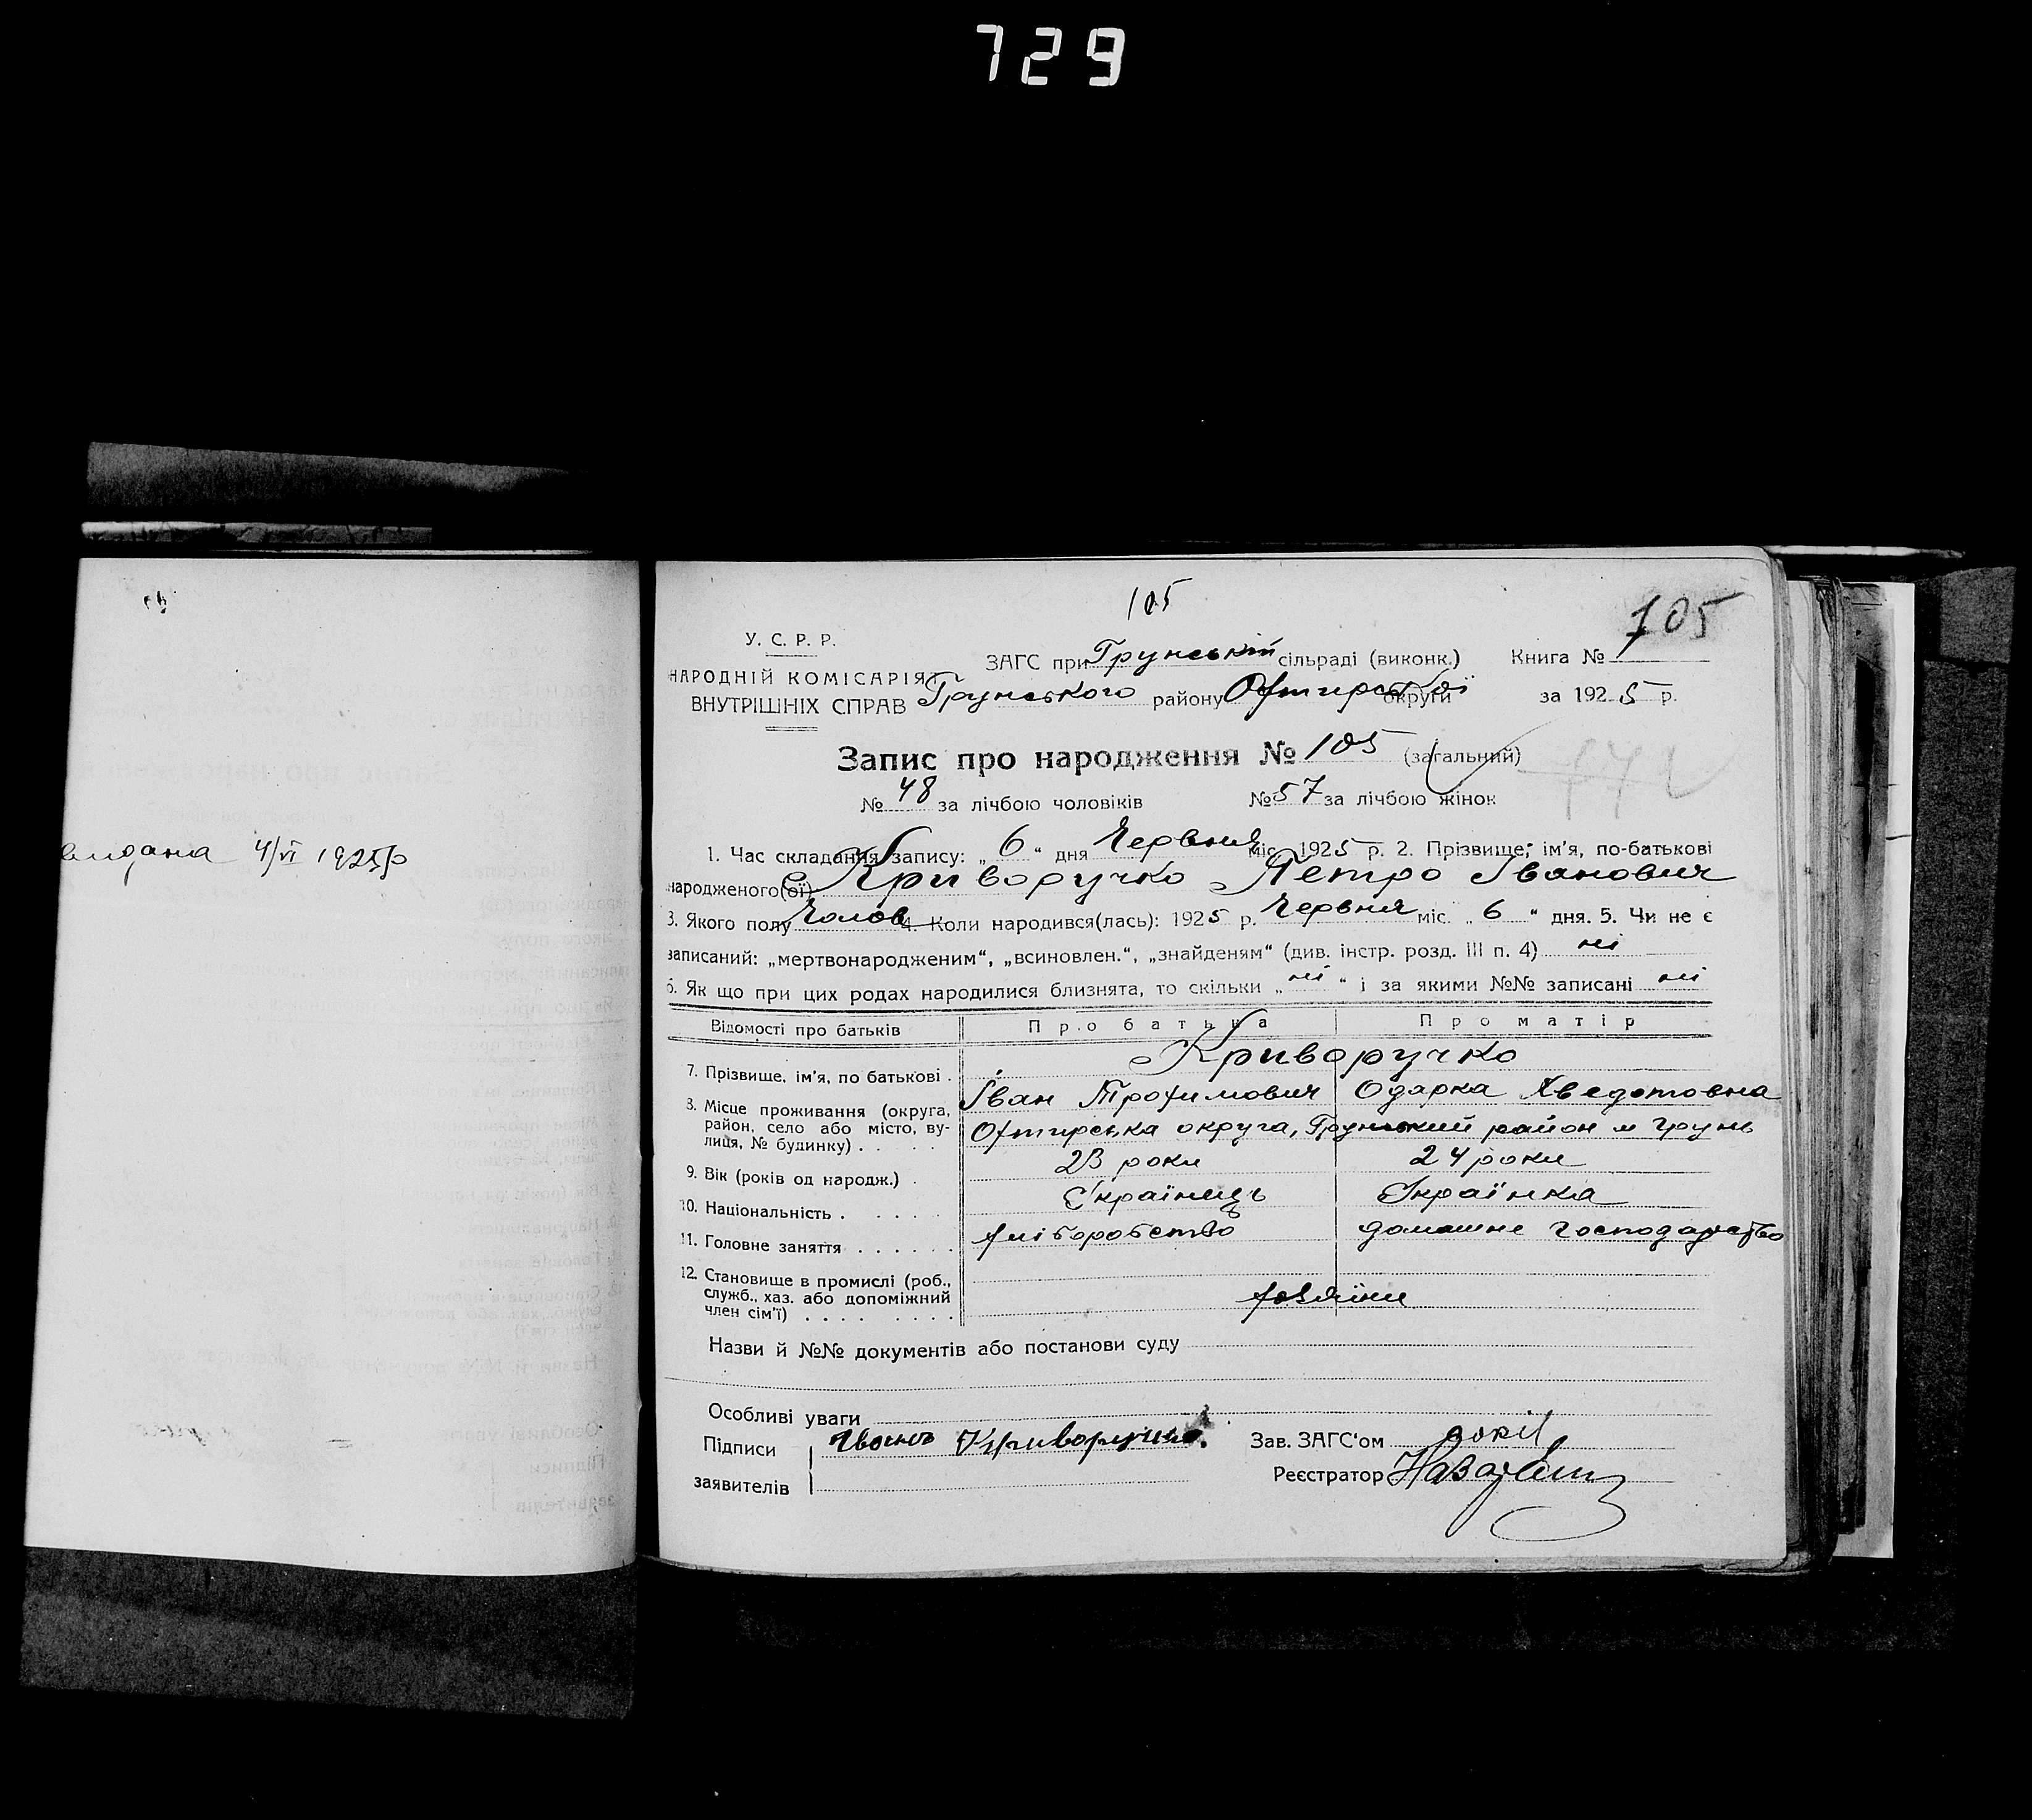 729
видана 4/VI 1925 р
105
105
У. С. Р. Р.
НАРОДНІЙ КОМІСАРІЯТ
ВНУТРІШНІХ СПРАВ
ЗАГС при Грунській сільраді (виконк.) Книга №
Грунського району Охтирської округи за 1925 р.
Запис про народження № 105 (загальний)
№ 48 за лічбою чоловіків № 57 за лічбою жінок
1. Час складання запису: „ 6 “ дня Червня міс. 1925 р. 2. Прізвище, ім'я, по-батькові
народженого(ої) Криворучко Петро Іванович
3. Якого полу Чолов 4. Коли народився(лась): 1925 р. Червня міс. „ 6 “ дня. 5. Чи не є
записаний: „мертвонародженим“, „всиновлен.“, „знайденям“ (див. інстр. розд. III п. 4) ні
6. Як що при цих родах народилися близнята, то скільки „ ні “ і за якими №№ записані ні
Відомості про батьків Про батька Про матір
Криворучко
7. Прізвище, ім'я, по батькові . Іван Трохимович Одарка Хведотовна
8. Місце проживання (округа, район, село або місто, вулиця, № будинку) . . . Охтирська округа, Грунський район м Грунь
9. Вік (років од народж.) . 23 роки 24 роки
10. Національність . . . . . Українець Українка
11. Головне заняття . . . . . . хліборобство домашне господарство
12. Становище в промислі (роб., служб., хаз. або допоміжний член сім'ї) . . . . . . . . хозяїни
Назви й №№ документів або постанови суду
Особливі уваги
Підписи Иванъ Криворучко. Зав. ЗАГС'ом
заявителів Реєстратор